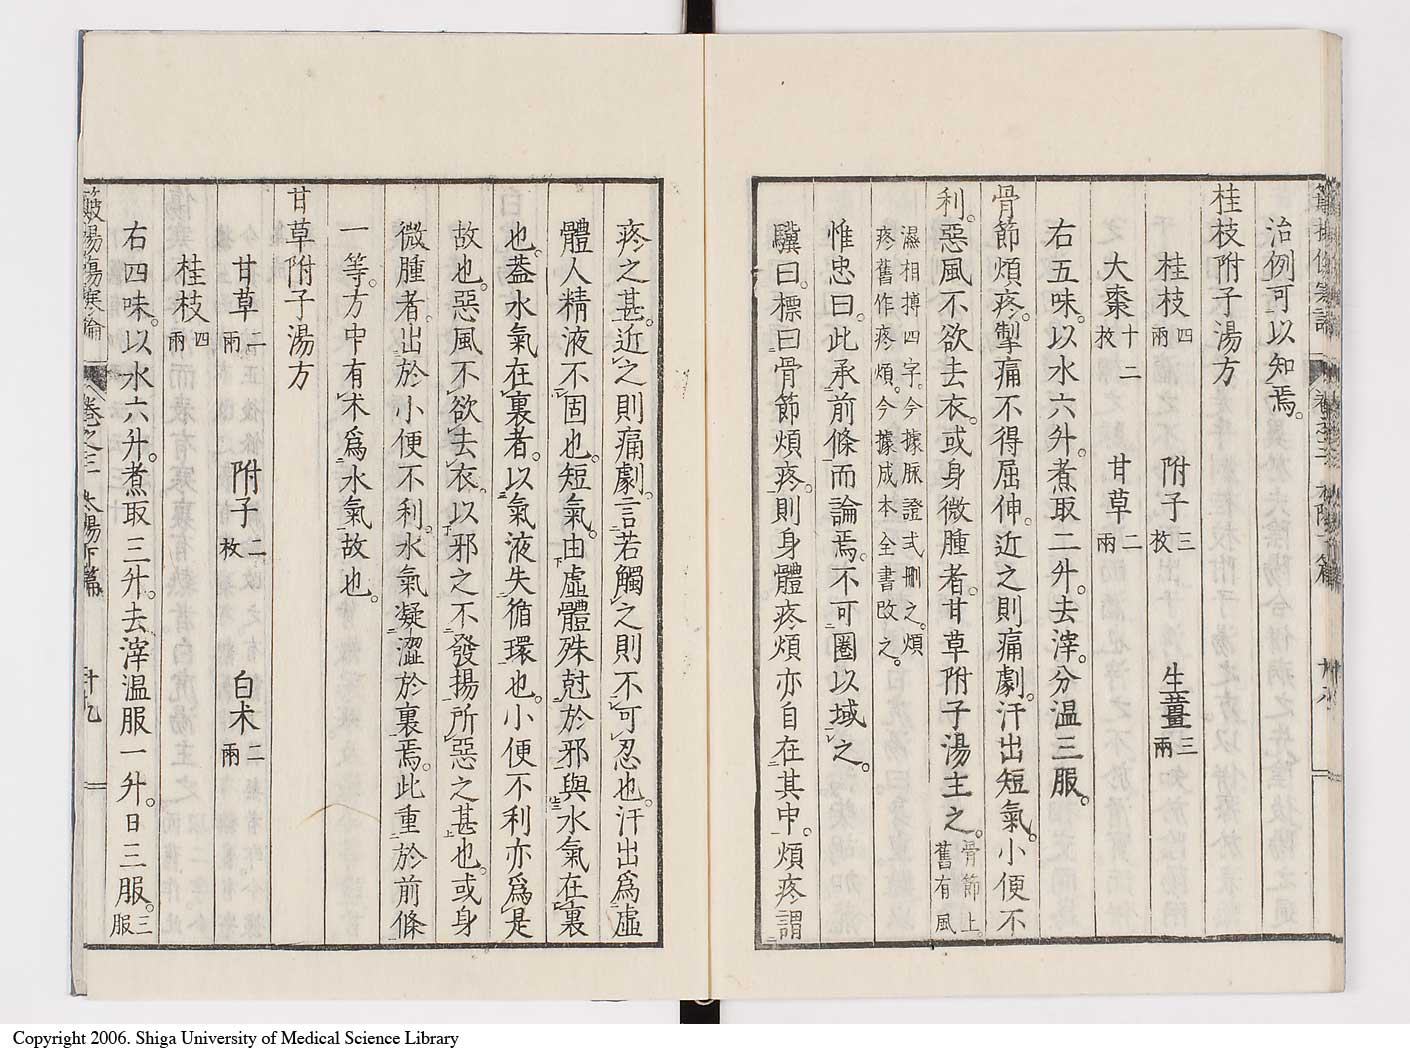 治例可以知焉。
桂枝附子湯方
桂枝四兩 附子三枚 生薑三兩
大棗十二枚 甘草二兩
右五味。以水六升。煮取二升。去滓。分溫三服。
骨節煩疼。掣痛不得屈伸。近之則痛劇。汗出短氣。小便不
利。惡風不欲去衣。或身微腫者。甘草附子湯主之。骨節上。舊有風
濕相搏四字。今據脉證式刪之。煩
疼舊作疼煩。今據成本全書改之。
惟忠曰。此承前條而論焉。不可圈以域之。
驥曰。標曰骨節煩疼。則身體疼煩亦自在其中。煩疼謂
疼之甚。近之則痛劇。言若觸之則不可忍也。汗出爲虛
體人精液不固也。短氣。由虛體殊尅於邪與水氣在裏
也。蓋水氣在裏者。以氣液失循環也。小便不利亦爲是
故也。惡風不欲去衣。以邪之不發揚所惡之甚也。或身
微腫者。出於小便不利。水氣凝澀於裏焉。此重於前條
一等。方中有朮爲水氣故也。
甘草附子湯方
甘草二兩 附子二枚 白朮二兩
桂枝四兩
右四味。以水六升。煮取三升。去滓。溫服一升。日三服。三服
傷寒論 卷之三 太陽下篇 十九
Copyright 2006. Shiga University of Medical Science Library